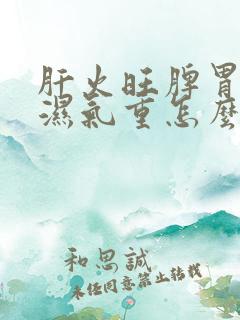 肝火旺脾胃
濕氣重怎麼
和思誠
未经同意禁止转载